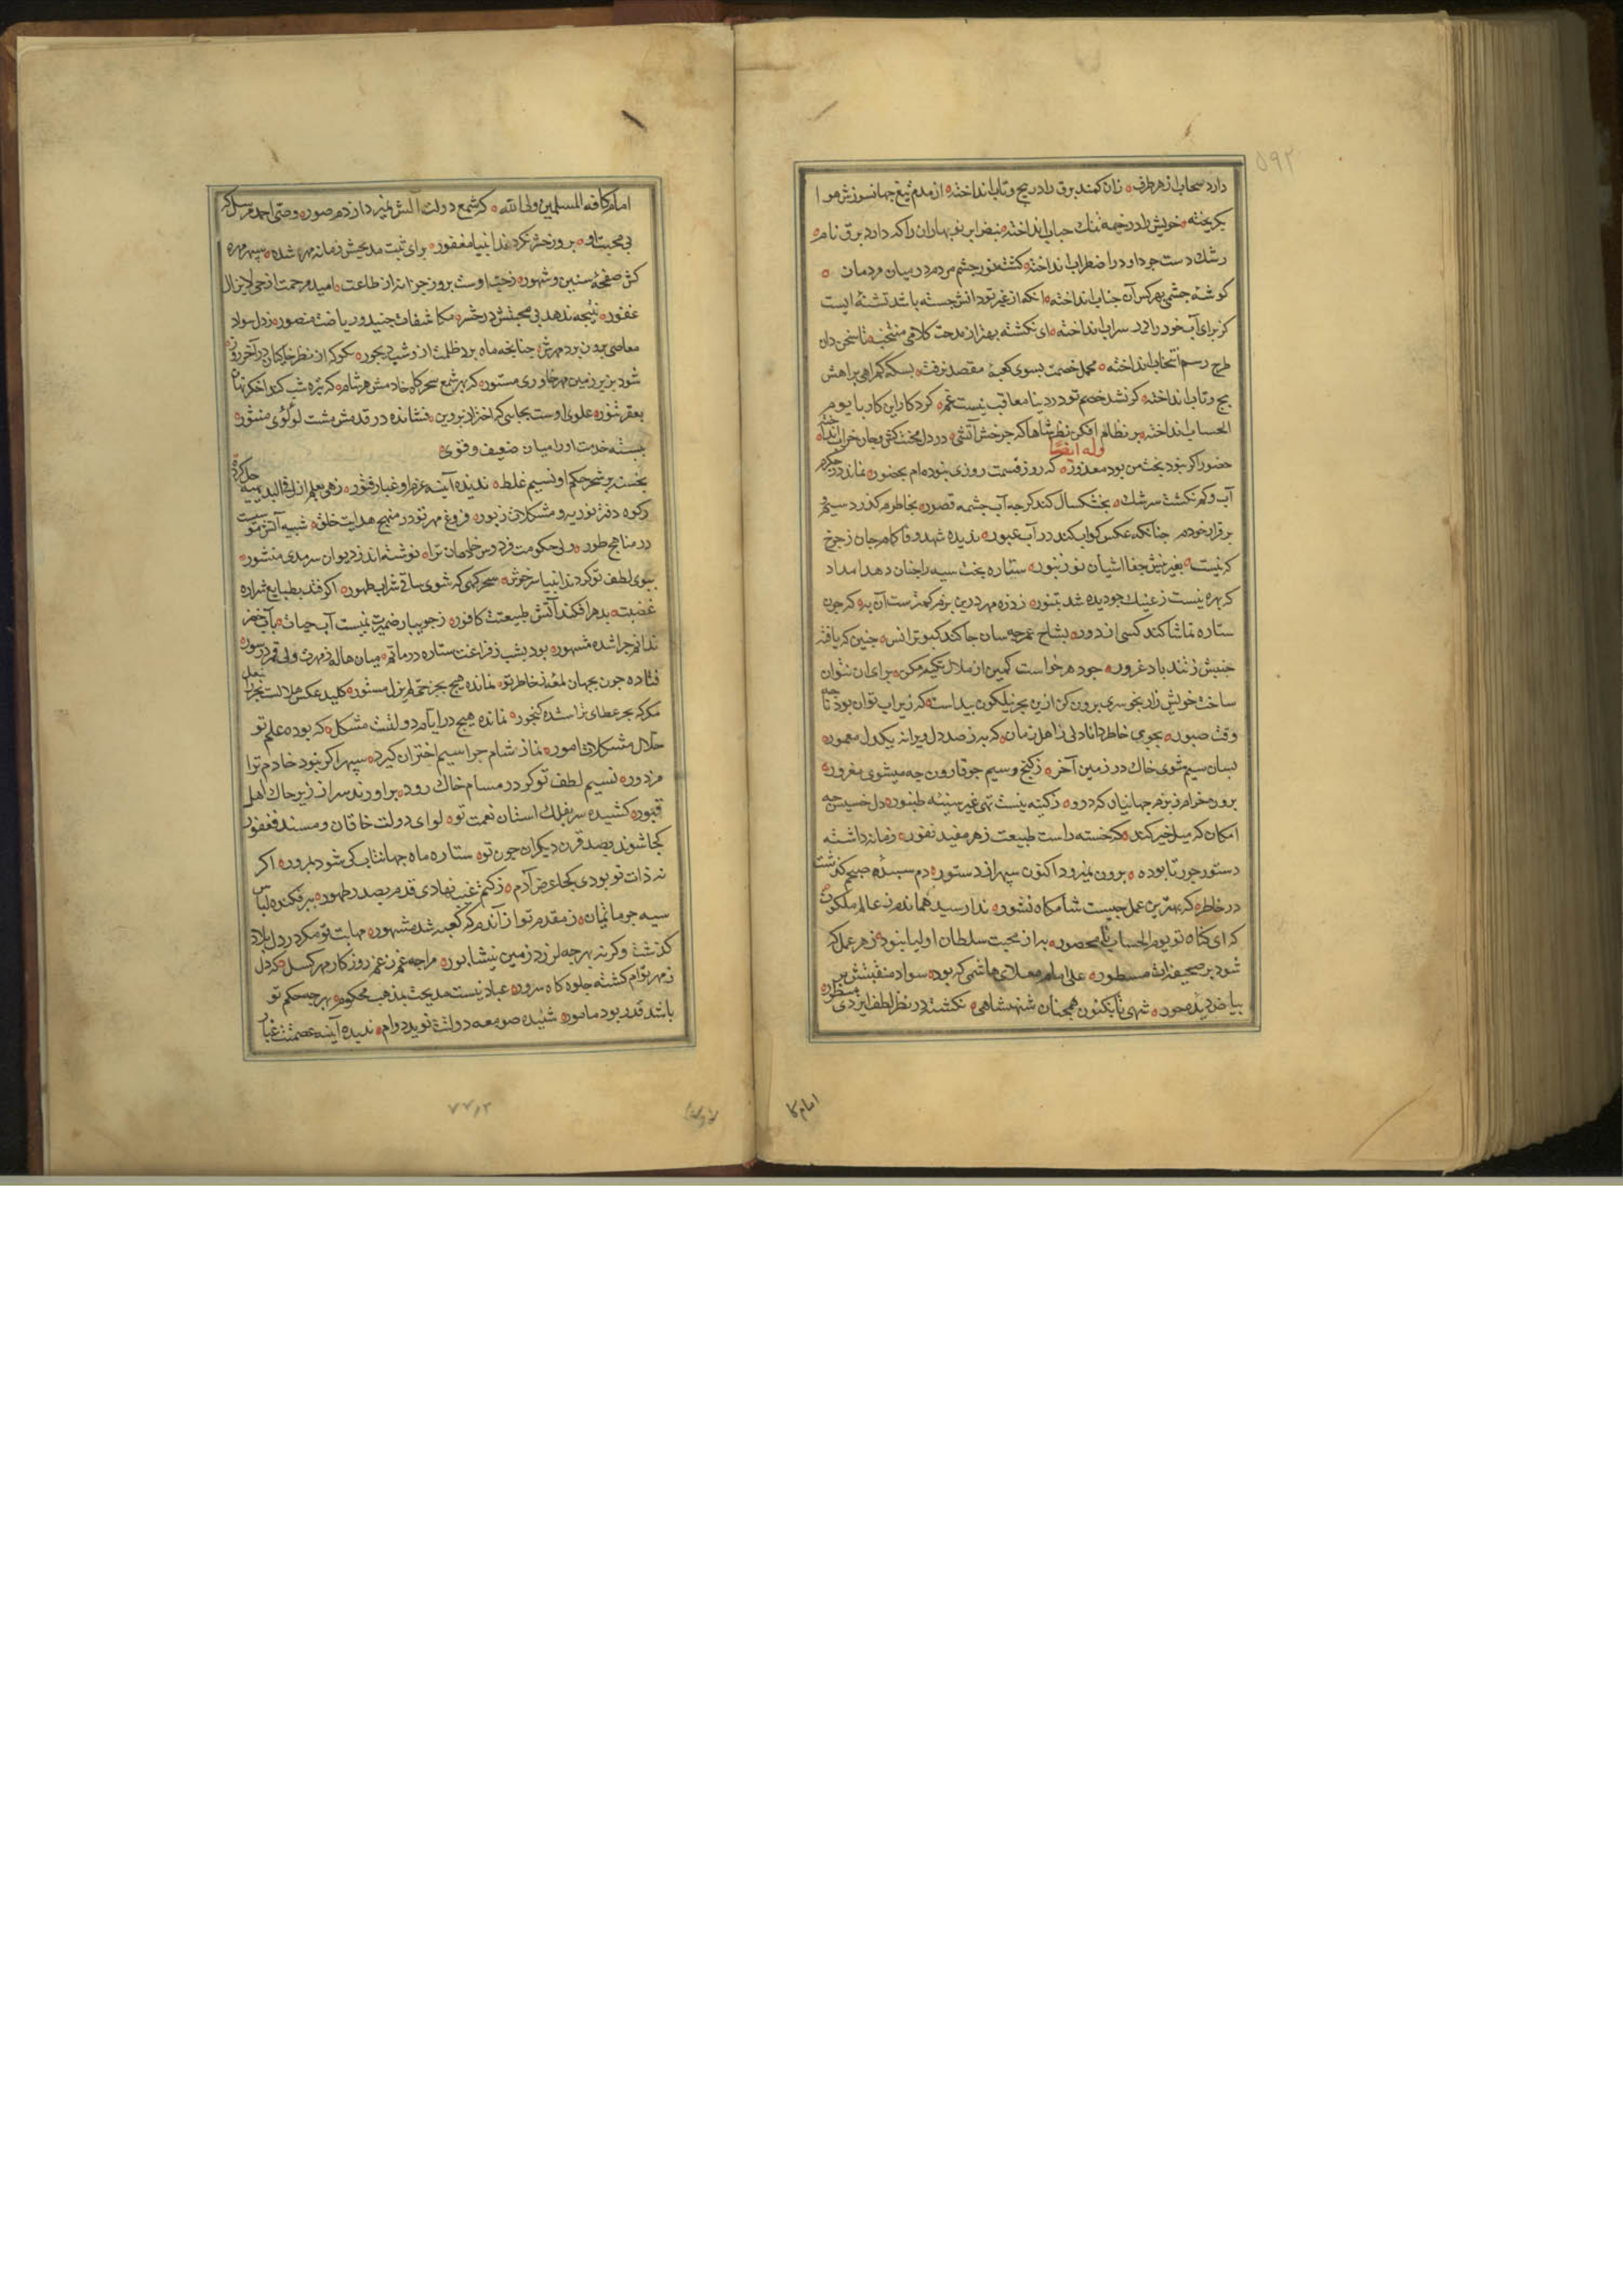 ۵۹۲
دارد سحاب از هر طرف ه زان کمند برق را در پیچ و تاب انداخته ه از مدم تیغ جهانسوزش هوا
بگریخته ه خویش را در خیمه تنک حباب انداخته ه نبض ابر نوبهاران را که دارد برق نام ه
رشک دست جود او در اضطراب انداخته ه کشته نور چشم مردم در میان مردمان ه
کوشه چشمی بهر کس آن جناب انداخته ه انکه از غیر تو دانش جسته باشد تشنه ایست
کز برای آب خود را در سراب انداخته ه ای نکشته بهتر از مدحت کلامی منتخب ه تا سخن دان
طرح رسم انتخاب انداخته ه محمل خصمت بسوی کعبه مقصد نرفت ه بسکه کمراهی براهش
پیچ و تاب انداخته ه کر نشد خصم تو در دنیا معاقب نیست غم ه کردکار این کار با یوم
الحساب انداخته ه بر نظام افکن نظر شاها که چرخش آتشی ه در دل محنت کش و جان خراب انداخته
وله ایضًا
حضور اکر نبود بخت من بود معذور ه که روز قسمت روزی نبوده ام بحضور ه نماند در جکرم
آب و کم نکشت سرشک ه بخشکسال کند کرچه آب چشمه قصور ه بخاطرم کذرد سیم و
برقرار خودم چنانکه عکس کواکب کند در آب عبور ه ندیده شهد وفا کام جان ز چرخ
که نیست ه بغیر نیش جفا اشیان نور زنبور ه ستاره بخت سیه را چنان دهد امداد
که بهره نیست ز عینک چو دیده شد بی نور ه ز دزه مهر درین بزم کمترست آن به ه که چون
ستاره تماشا کند کسی از دور ه بشاخ عمر چه سان جا کند کبوتر انس ه چنین که یافته
جنبش ز تند باد غرور ه چو دهر خواست کمین از ملال تکیه مکن ه برای آن نتوان
ساخت خویش را رنجور ه سری برون کن ازین بحر نیلکون پیداست ه که زیر آب توان بود تا چه
وقت صبور ه بجوی خاطر دانا دلی ز اهل زمان ه که به ز صد دل ویرانه یکدل معمور ه
بسان سیم شوی خاک در زمین آخر ه ز کنج و سیم چو قارون چه میشوی مغرور ه
برون خرام ز بزم جهانیان که درو ه ز کینه نیست تهی غیر سینه طنبور ه دل خسیس چه
امکان که میل خیر کند ه که خسته راست طبیعت ز هر مفید نفور ه زمانه داشته
دستور جور تا بوده ه برون نمیرود اکنون سپهر از دستور ه دم سپیده صبحم کذشت
در خاطر ه که بهترین عمل چیست شامکاه نشور ه ندا رسید هماندم ز عالم ملکوت
که ای کناه تو یوم الحساب نامحصور ه به از محبت سلطان اولیا نبود ه ز هر عمل که
شود بر صحیفه‌ات مسطور ه علی امام معلای هاشمی که بود ه سواد منقبتش بر
بیاض دیده حور ه شهی که تا بکنون همچنان شهنشاهی ه نکشته در نظر لطف ایزدی منظور
امام کا
امام کافه المسلمین ولی الله ه که شمع دولت آلش نمیرد از دم صور ه وصی احمد مرسل که
بی محبت او ه بروز حشر نکردند انبیا مغفور ه برای ثبت مدیحش زمانه مهره شده ه سپهر مهره
کش صفحه سنین و شهور ه ز حب اوست بروز جزا نه از طاعت ه امید مرحمت از حی لایزال
غفور ه نتیجه ندهد بی محبتش در حشر ه مکاشفات جنید و ریاضت منصور ه ز دل سواد
معاصی برون برد مهرش ه چنانچه ماه برد ظلمت از شب دیجور ه مکو که از نظر خاکیان در آخر روز
شود بزیر زمین مهر خاوری مستور ه که بهر شمع سحرکاه خادمش هر شام ه که تیره شب کند اخکر نهان
بقعر تنور ه علوی اوست بجایی که اختران پروین ه فشانده در قدمش مشت لولوی منثور ه
ببسته خدمت او را میان ضعیف و قوی ه
نخسته وشحر حکم او نسیم غلط ه ندیده آینه عزم او غبار فتور ه زهی بعلم ازل فی البدیهیه حل کرده
رکوه دفتر توریه و مشکلات زبور ه فروغ مهر تو در منهج هدایت خلق ه شبیه آتش موسیست
در مناهج طور ه ولی حکومت فردوس جاودان ترا ه نوشته اند ز دیوان سرمدی منشور ه
ببوی لطف تو کردند انبیا سرخوش ه سحرکهی که شوی ساقی شراب طهور ه اکر فتد بطبایع شراره
غضبت ه بدهر افکند آتش طبیعت کافور ه ز جویبار ضمیرت نمیست آب حیات ه بآب خضر
ندانم چرا شده مشهور ه بود بشب ز فراغت ستاره در ماتم ه میان هاله ز مهرت ولی قمر در سور ه
فتاده چون بجهان لمعه ز خاطر تو ه نمانده هیچ بجز حکم لم یزل مستور ه کلید عکس هلالست بحر را بغل
مکر که بحر عطای ترا شده کنجور ه نمانده هیچ در ایام دولتت مشکل ه که بوده علم تو
حلال مشکلات امور ه نماز شام چرا سیم اختران کیرد ه سپهر اکر نبود خادم ترا
مزدور ه نسیم لطف تو کر در مسام خاک رود ه برآورند سر از زیر خاک اهل
قبور ه کشیده سر بفلک استان نعمت تو ه لوای دولت خاقان و مسند فغفور
کجا شوند بصد قرن دیکران چون تو ه ستاره ماه جهانتاب کی شود بمرور ه اکر
نه ذات تو بودی کجا غرض آدم ه ز کتم غیب نهادی قدم بصدر ظهور ه ببر فکنده لباس
سیه چو ماتمیان ه ز مقدم تو از آندم که کعبه شد مشهور ه مهابت تو مکر در دل بلاد
کذشت وکرنه بهر چه لرزد زمین نیشابور ه مرا چه غم ز غم روزکار مهر کسل ه که دل
ز مهر توام کشته جلوه کاه سرور ه عباد نیست مدیحت بمذهب محکوم ه بهر چه حکم تو
باشد قدر بود مامور ه شنیده صومعه دولتت نوید دوام ه ندیده آینه عصمتت غبار
۷۷٫۲